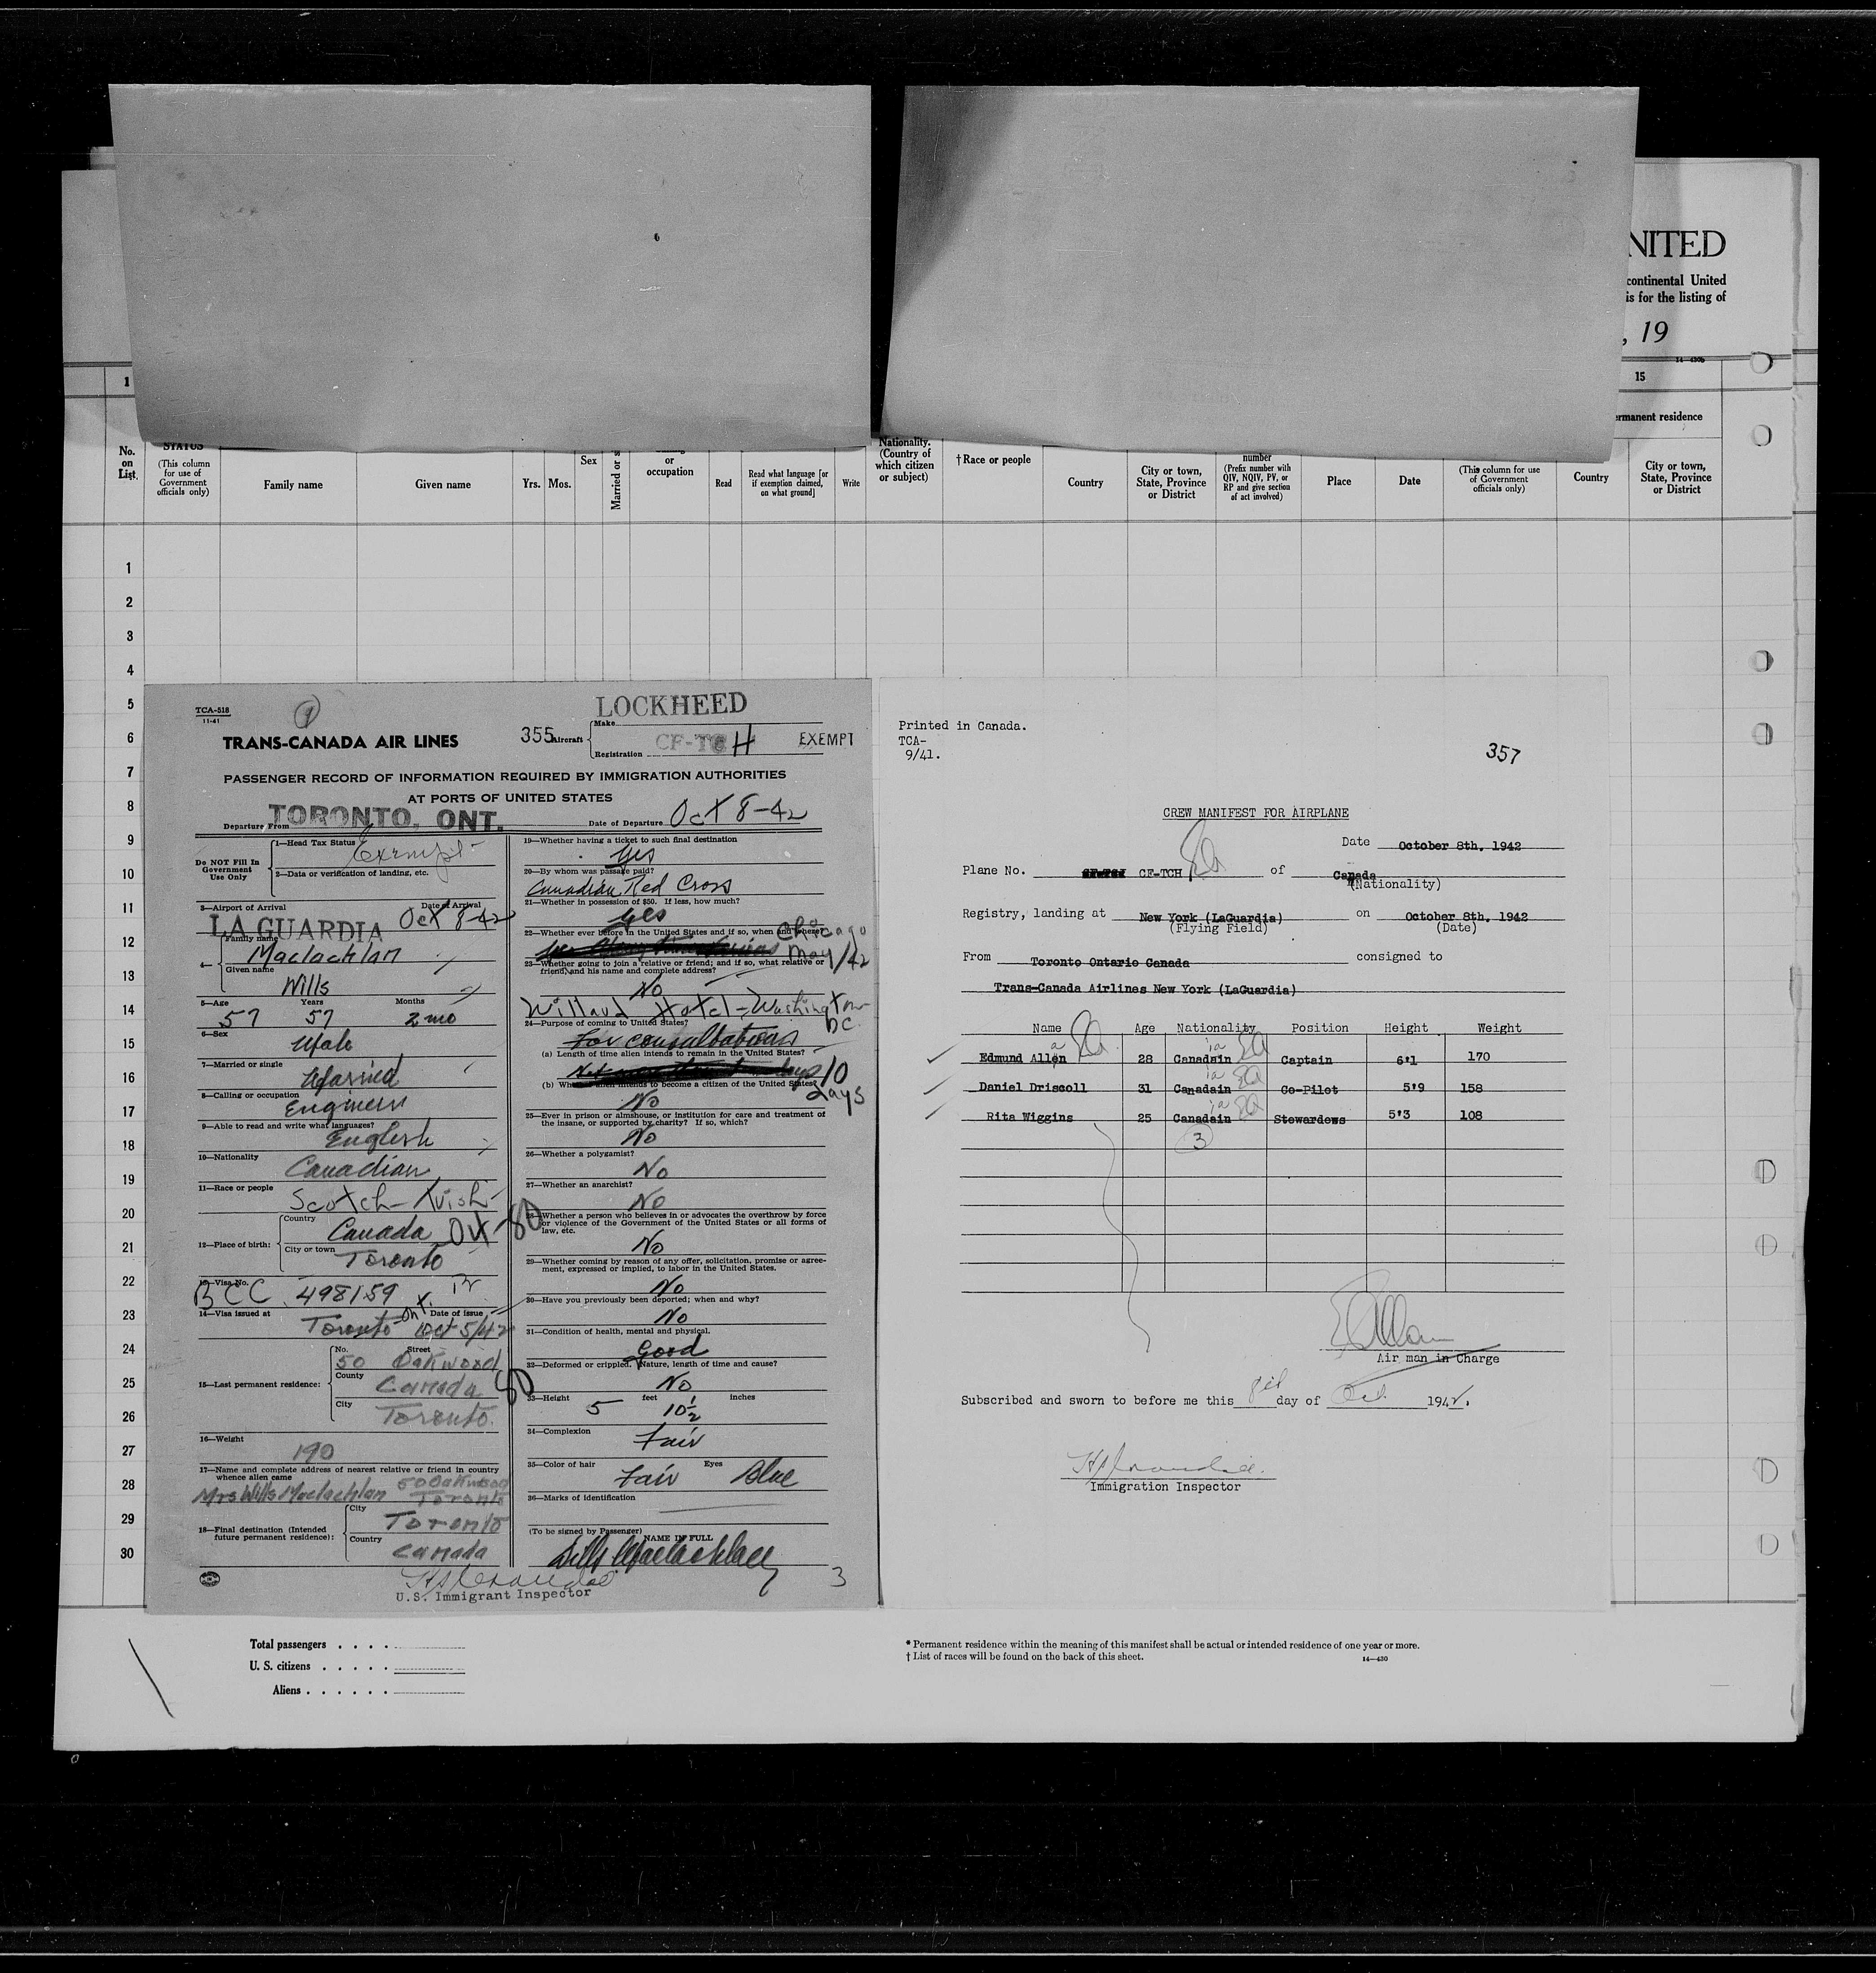 NITED
continental United
is for the listing of
, 19
14—430b
1
15
ermanent residence
No.
on
List.
STATUS
(This column
for use of
Government
officials only)
Family name
Given name
Yrs.
Mos.
Sex
Married or s
or
occupation
Read
Read what language [or
if exemption claimed,
on what ground]
Write
Nationality.
(Country of
which citizen
or subject)
†Race or people
Country
City or town,
State, Province
or District
number
(Prefix number with
QIV, NQIV, PV, or
RP and give section
of act involved)
Place
Date
(This column for use
of Government
officials only)
Country
City or town,
State, Province
or District
1
2
3
4
5
6
7
8
9
10
11
12
13
14
15
16
17
18
19
20
21
22
23
24
25
26
27
28
29
30
TCA-518
11-41
1
LOCKHEED
TRANS-CANADA AIR LINES
355
Aircraft
Make
Registration CF-TCH
EXEMPT
PASSENGER RECORD OF INFORMATION REQUIRED BY IMMIGRATION AUTHORITIES
AT PORTS OF UNITED STATES
Departure From TORONTO, ONT.
Date of Departure Oct 8-42
Do NOT Fill In
Government
Use Only
1—Head Tax Status Exempt
2—Data or verification of landing, etc.
3—Airport of Arrival
Date of Arrival
LA GUARDIA Oct 8-42
4—
Family name
Maclachlan
Given name
Wills
5—Age Years Months
57 57 2 mo
6—Sex
Male
7—Married or single
Married
8—Calling or occupation
Engineer
9—Able to read and write what languages?
English
10—Nationality
Canadian
11—Race or people
Scotch-Irish
12—Place of birth:
Country
Canada Ont
City or town
Toronto
13—Visa No.
BCC 498159
14—Visa issued at
Date of issue
Toronto Ont. Oct 5/42
15—Last permanent residence:
No. Street
50 Oakwood
County
Canada
City
Toronto.
16—Weight
190
17—Name and complete address of nearest relative or friend in country
whence alien came
Mrs Wills Maclachlan 50 Oakwood
Toronto
18—Final destination (Intended
future permanent residence):
City
Toronto
Country
Canada
U.S. Immigrant Inspector
19—Whether having a ticket to such final destination
Yes
20—By whom was passage paid?
Canadian Red Cross
21—Whether in possession of $50. If less, how much?
Yes
22—Whether ever before in the United States and if so, when and where?
Chicago
May/42
23—Whether going to join a relative or friend; and if so, what relative or
friend, and his name and complete address?
No
Willard Hotel-Washington
DC.
24—Purpose of coming to United States?
For consultations
(a) Length of time alien intends to remain in the United States?
10
days
(b) Whether alien intends to become a citizen of the United States?
No
25—Ever in prison or almshouse, or institution for care and treatment of
the insane, or supported by charity? If so, which?
No
26—Whether a polygamist?
No
27—Whether an anarchist?
No
28—Whether a person who believes in or advocates the overthrow by force
or violence of the Government of the United States or all forms of
law, etc.
No
29—Whether coming by reason of any offer, solicitation, promise or agree-
ment, expressed or implied, to labor in the United States.
No
30—Have you previously been deported; when and why?
No
31—Condition of health, mental and physical.
Good
32—Deformed or crippled. Nature, length of time and cause?
No
33—Height feet inches
5 10½
34—Complexion
Fair
35—Color of hair Eyes
Fair Blue
36—Marks of identification
(To be signed by Passenger)
NAME IN FULL
Wills Maclachlan
3
Printed in Canada.
TCA-
9/41.
357
CREW MANIFEST FOR AIRPLANE
Date October 8th, 1942
Plane No. CF-TCH of Canada
(Nationality)
Registry, landing at New York (LaGuardia) on October 8th, 1942
(Flying Field)
(Date)
From Toronto Ontario Canada consigned to
Trans-Canada Airlines New York (LaGuardia)
Name Age Nationality Position Height Weight
Edmund Allen 28 Canadain Captain 6'1 170
Daniel Driscoll 31 Canadain Co-Pilot 5'9 158
Rita Wiggins 25 Canadain Stewardews 5'3 108
3
EAllan
Air man in Charge
Subscribed and sworn to before me this 8th day of Oct. 1942.
Immigration Inspector
Total passengers . . . .
U. S. citizens . . . . .
Aliens . . . . . .
* Permanent residence within the meaning of this manifest shall be actual or intended residence of one year or more.
† List of races will be found on the back of this sheet.
14—430